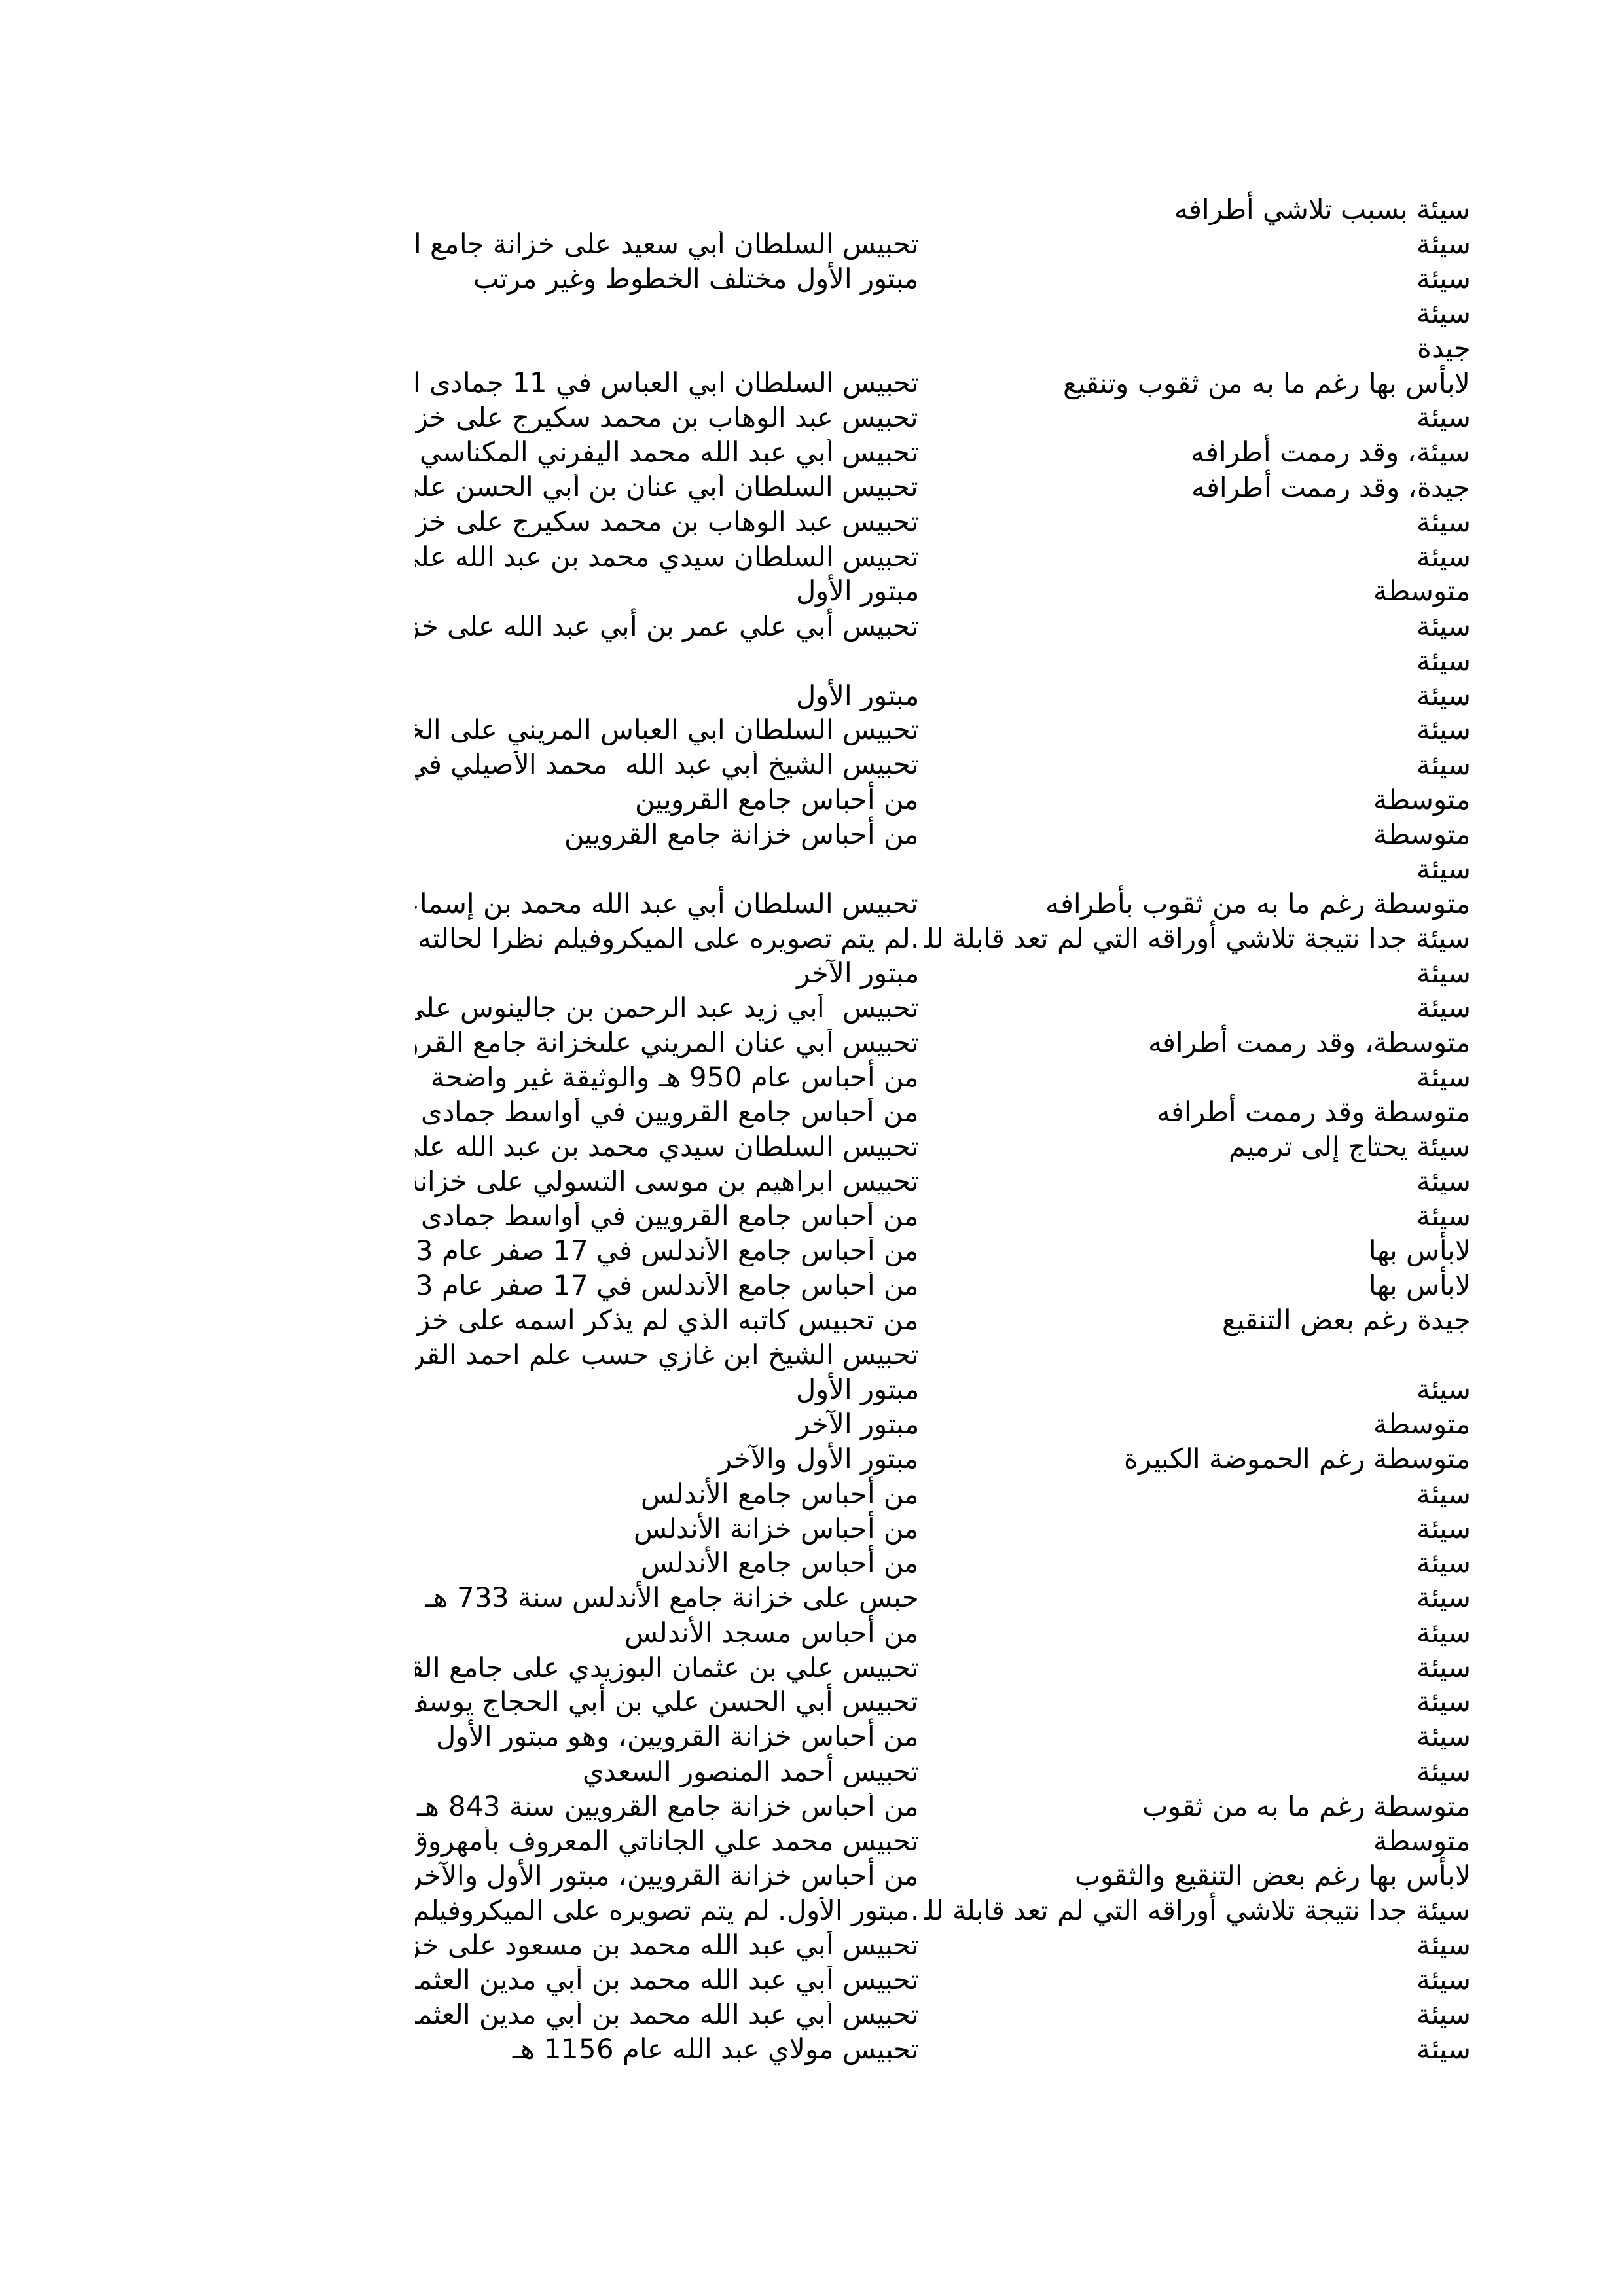 سيئة بسبب تلاشي أطرافه
سيئة تحبيس السلطان أبي سعيد على خزانة جامع ا
سيئة مبتور الأول مختلف الخطوط وغير مرتب
سيئة
جيدة
لابأس بها رغم ما به من ثقوب وتنقيع تحبيس السلطان أبي العباس في 11 جمادى ا
سيئة تحبيس عبد الوهاب بن محمد سكيرج على خز
سيئة، وقد رممت أطرافه تحبيس أبي عبد الله محمد اليفرني المكناسي
جيدة، وقد رممت أطرافه تحبيس السلطان أبي عنان بن أبي الحسن على
سيئة تحبيس عبد الوهاب بن محمد سكيرج على خز
سيئة تحبيس السلطان سيدي محمد بن عبد الله على
متوسطة مبتور الأول
سيئة تحبيس أبي علي عمر بن أبي عبد الله على خز
سيئة
سيئة مبتور الأول
سيئة تحبيس السلطان أبي العباس المريني على الخ
سيئة تحبيس الشيخ أبي عبد الله محمد الأصيلي في
متوسطة من أحباس جامع القرويين
متوسطة من أحباس خزانة جامع القرويين
سيئة
متوسطة رغم ما به من ثقوب بأطرافه تحبيس السلطان أبي عبد الله محمد بن إسما
سيئة جدا نتيجة تلاشي أوراقه التي لم تعد قابلة لل .لم يتم تصويره على الميكروفيلم نظرا لحالته
سيئة مبتور الآخر
سيئة تحبيس أبي زيد عبد الرحمن بن جالينوس على
متوسطة، وقد رممت أطرافه تحبيس أبي عنان المريني علىخزانة جامع القرو
سيئة من أحباس عام 950 هـ والوثيقة غير واضحة
متوسطة وقد رممت أطرافه من أحباس جامع القرويين في أواسط جمادى
سيئة يحتاج إلى ترميم تحبيس السلطان سيدي محمد بن عبد الله على
سيئة تحبيس ابراهيم بن موسى التسولي على خزانة
سيئة من أحباس جامع القرويين في أواسط جمادى
لابأس بها من أحباس جامع الأندلس في 17 صفر عام 3
لابأس بها من أحباس جامع الأندلس في 17 صفر عام 3
جيدة رغم بعض التنقيع من تحبيس كاتبه الذي لم يذكر اسمه على خز
تحبيس الشيخ ابن غازي حسب علم أحمد القر
سيئة مبتور الأول
متوسطة مبتور الآخر
متوسطة رغم الحموضة الكبيرة مبتور الأول والآخر
سيئة من أحباس جامع الأندلس
سيئة من أحباس خزانة الأندلس
سيئة من أحباس جامع الأندلس
سيئة حبس على خزانة جامع الأندلس سنة 733 هـ
سيئة من أحباس مسجد الأندلس
سيئة تحبيس علي بن عثمان البوزيدي على جامع الق
سيئة تحبيس أبي الحسن علي بن أبي الحجاج يوسف
سيئة من أحباس خزانة القرويين، وهو مبتور الأول
سيئة تحبيس أحمد المنصور السعدي
متوسطة رغم ما به من ثقوب من أحباس خزانة جامع القرويين سنة 843 هـ
متوسطة تحبيس محمد علي الجاناتي المعروف بأمهروق
لابأس بها رغم بعض التنقيع والثقوب من أحباس خزانة القرويين، مبتور الأول والآخر
سيئة جدا نتيجة تلاشي أوراقه التي لم تعد قابلة لل .مبتور الأول. لم يتم تصويره على الميكروفيلم
سيئة تحبيس أبي عبد الله محمد بن مسعود على خز
سيئة تحبيس أبي عبد الله محمد بن أبي مدين العثم
سيئة تحبيس أبي عبد الله محمد بن أبي مدين العثم
سيئة تحبيس مولاي عبد الله عام 1156 هـ